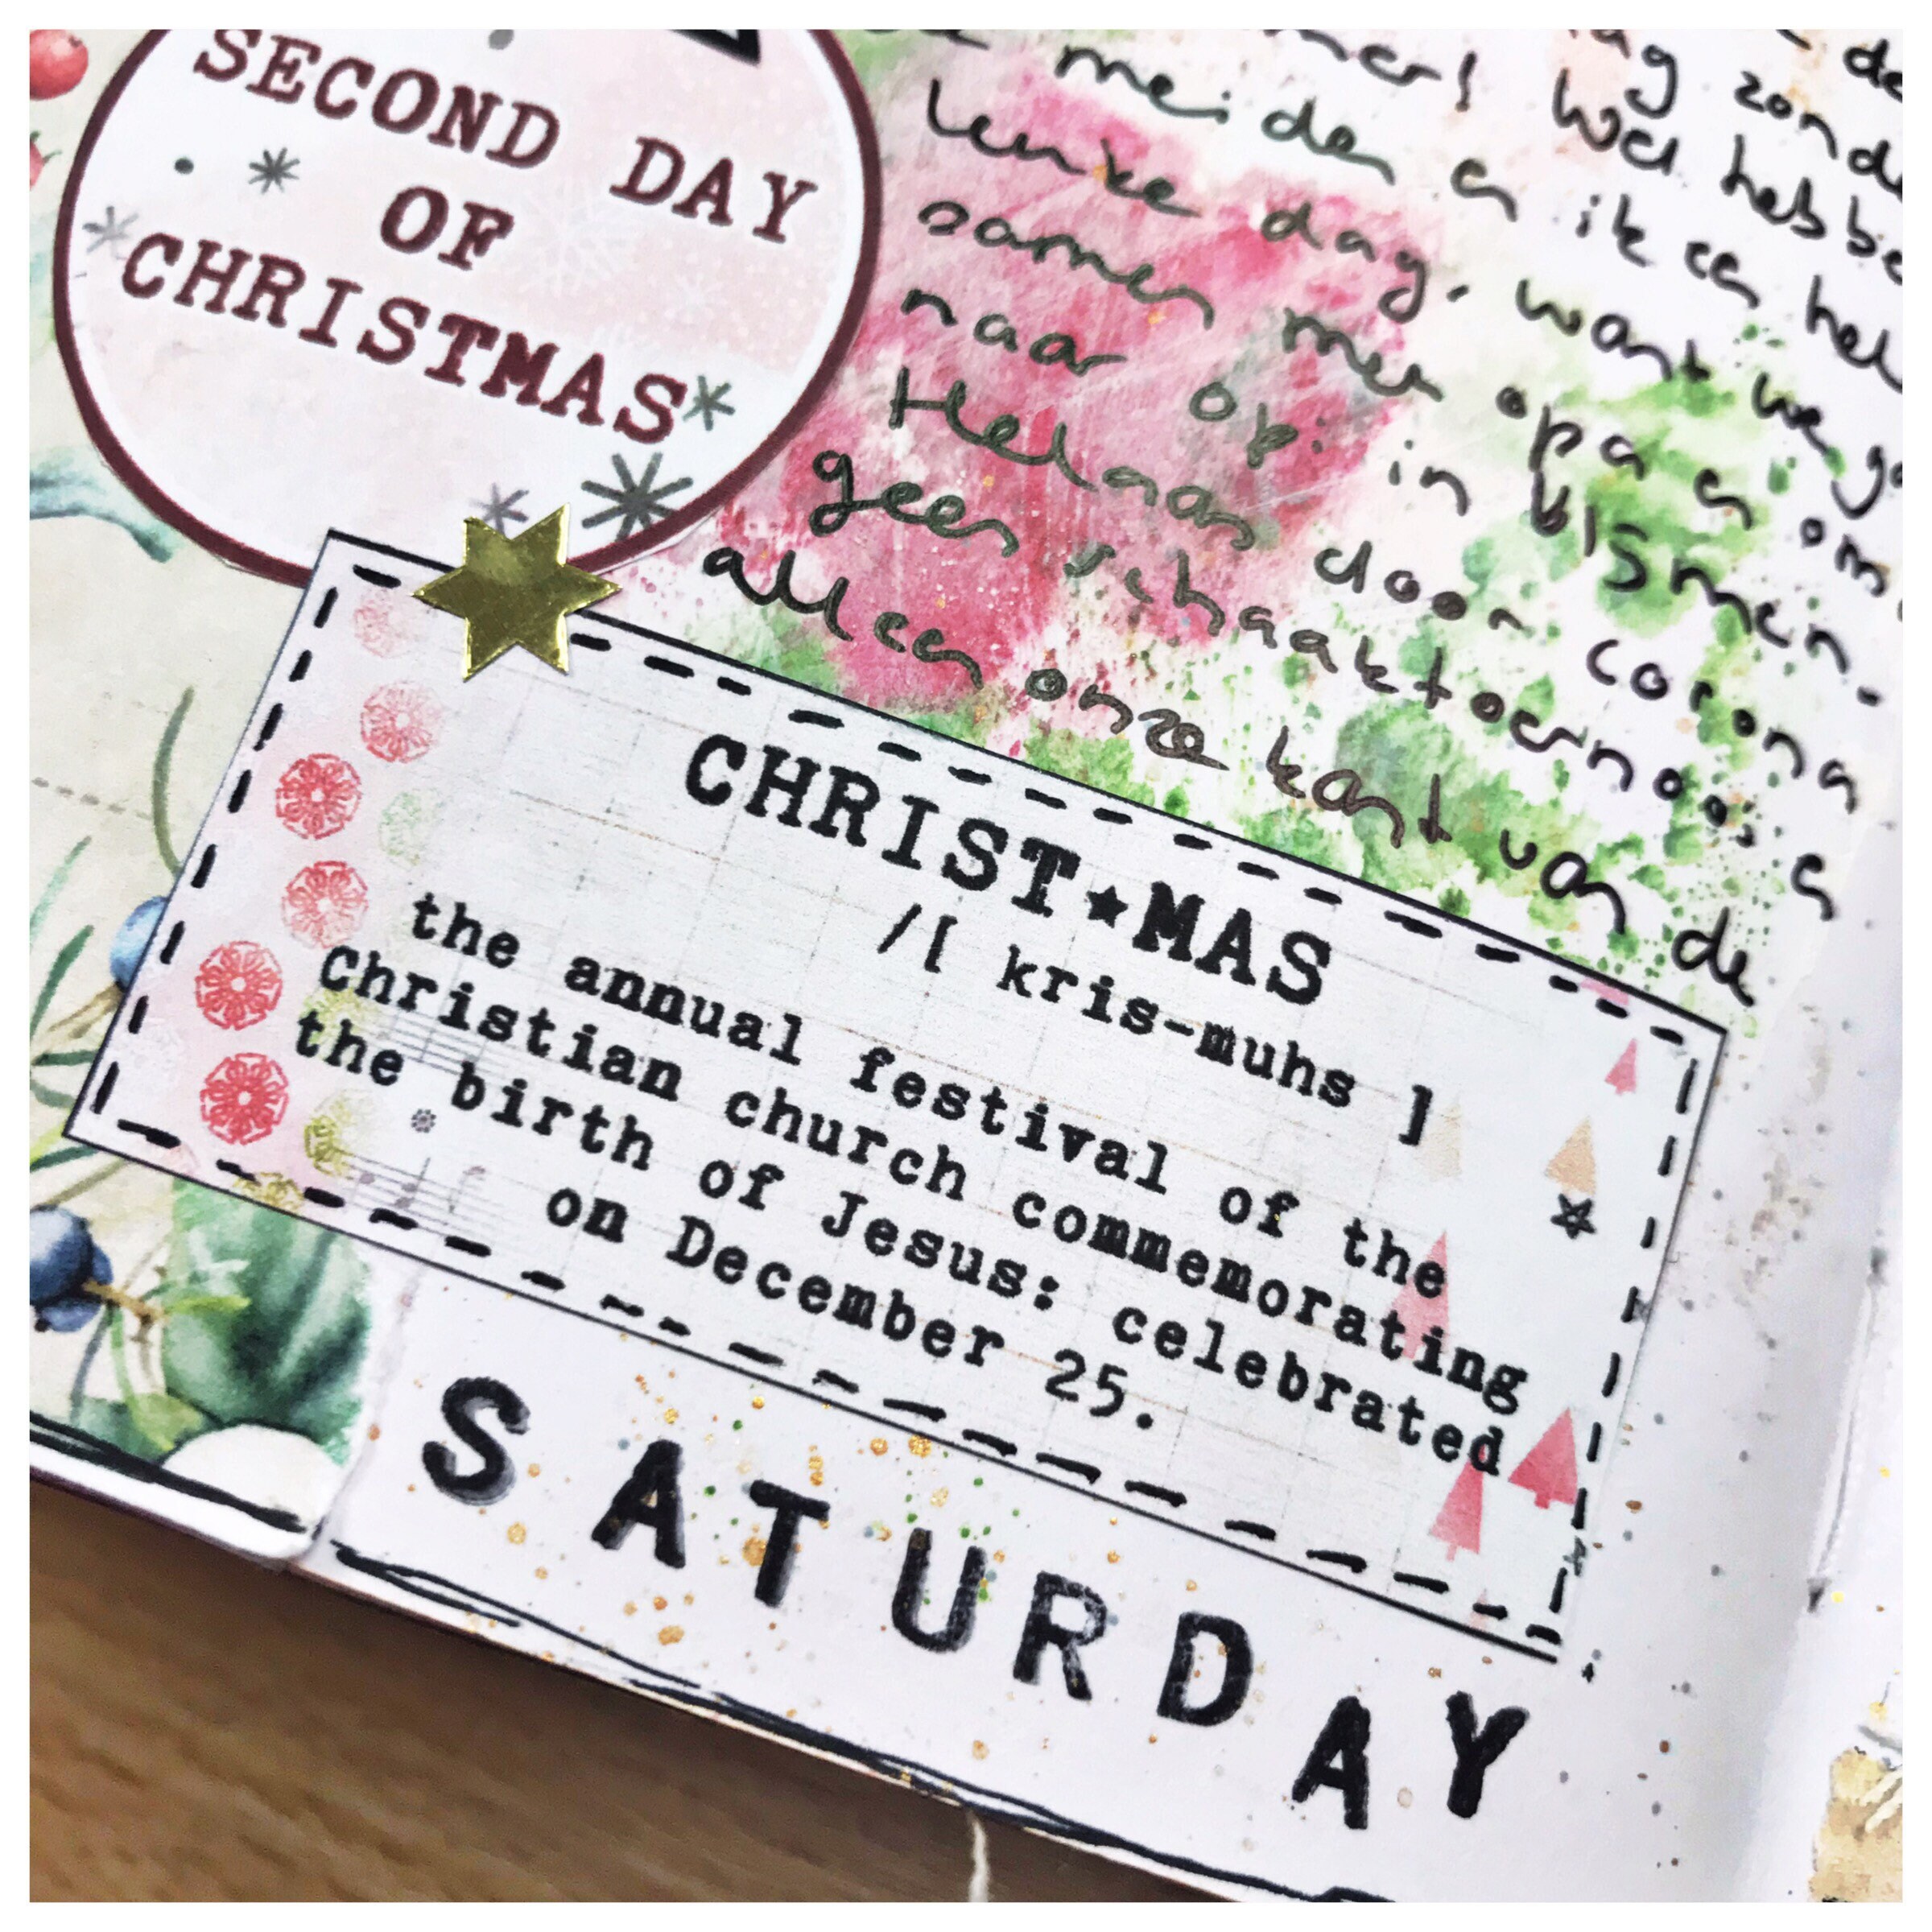 SECOND DAY
OF
CHRISTMAS
mer! Wel hebbe
meiden en ik een hel
leuke dag, want we ga
samen met opa en om
naar opi in Bismen-
Helaas door corona
geen schaaktoernooi en
alleen onze kant van de
CHRIST★MAS
/[ kris-muhs ]
the annual festival of the
Christian church commemorating
the birth of Jesus: celebrated
on December 25.
SATURDAY